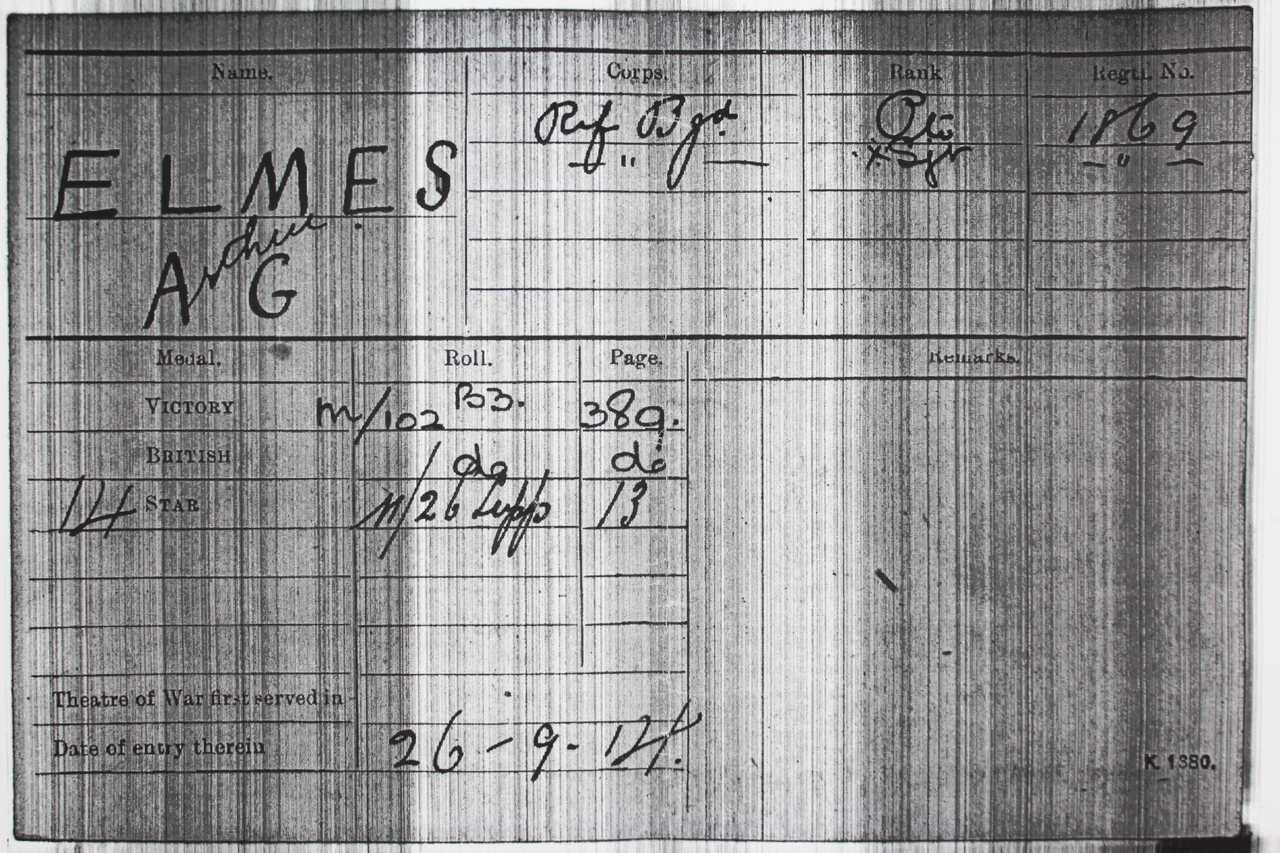 Name. Corps. Rank Regtl. No.
ELMES Rif Bgd. Pte 1869
— " — x Sjt — " —
Arthur
A G
Medal. Roll. Page. Remarks.
VICTORY m/102 B3. 389.
BRITISH do do
14 STAR M/26 Supp 13
Theatre of War first served in
Date of entry therein 26-9-14.
K. 1380.